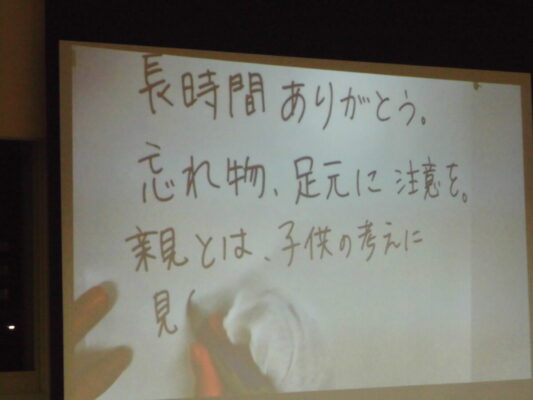 長時間 ありがとう。
忘れ物、足元に 注意を。
親とは、子供の考えに
見